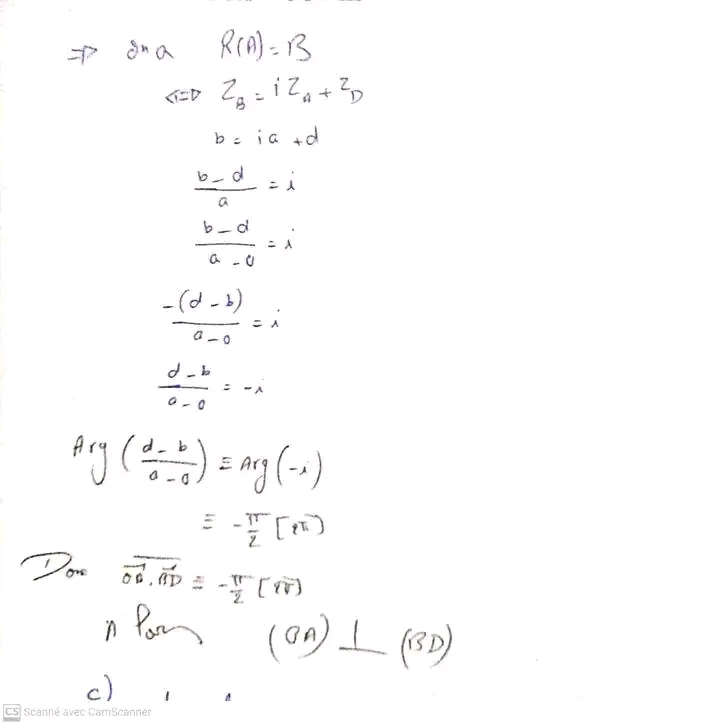 => on a R(A) = B
<=> Z_B = i Z_A + Z_D
b = ia + d
b - d / a = i
b - d / a - 0 = i
-(d - b) / a - 0 = i
d - b / a - 0 = -i
Arg (d - b / a - 0) ≡ Arg(-i)
≡ -π/2 [2π]
Donc OA, BD ≡ -π/2 [2π]
(OA) ⊥ (BD)
c)
CS Scanné avec CamScanner